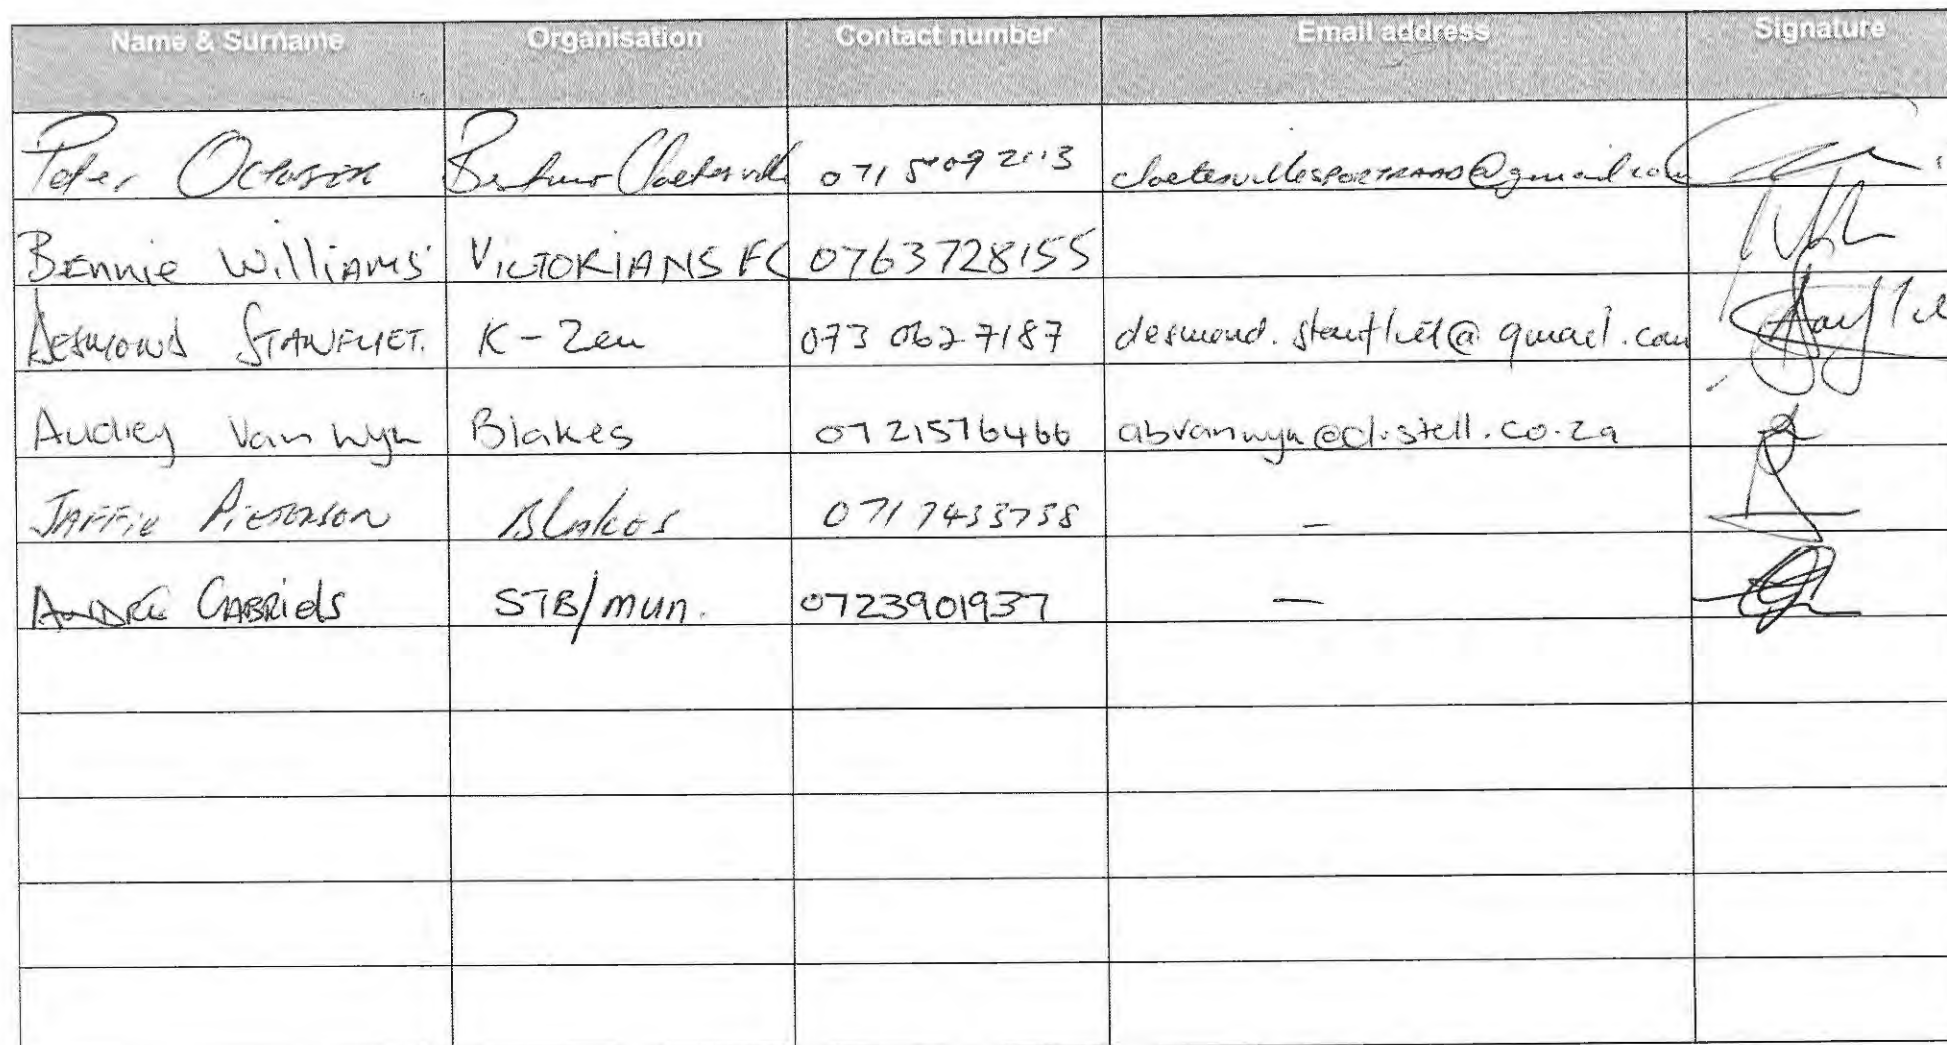 Name & Surname Organisation Contact number Email address Signature
Peter October Bestuur Cloetesville cloetesvillesportraad@gmail.com
Bennie Williams VICTORIANS FC 0763728155
Desmond Stanfliet. K-Zen 073 0627187 desmond.stanfliet@gmail.com
Audrey Van Wyk Blakes 0721576466 abvanwyk@distell.co.za
Jaffie Pieterson Blakes 071 7433738 –
André Gabriels STB/mun. 0723901937 –